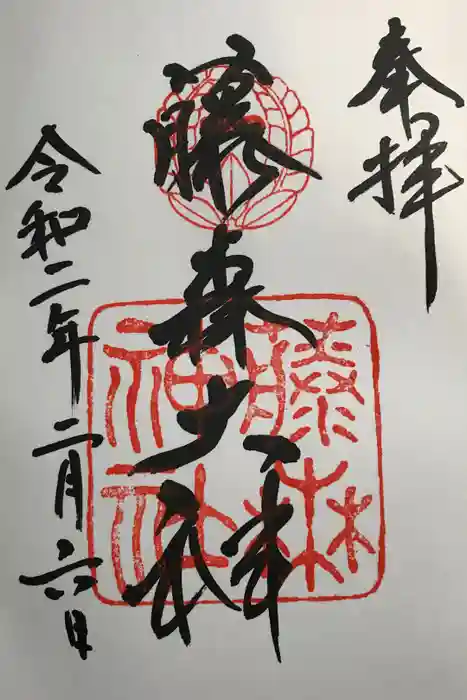 奉拝
藤森
藤森
神社
令和二年二月六日